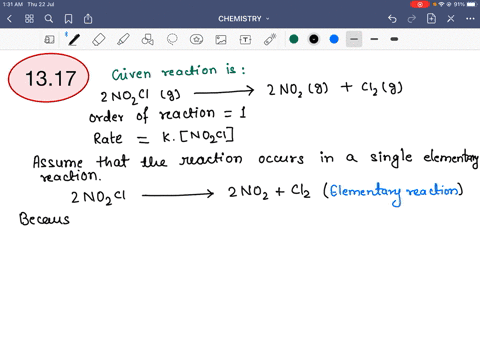 1:31 AM Thu 22 Jul
CHEMISTRY
91%
13.17
Given reaction is:
2 NO₂Cl (g) ⟶ 2 NO₂ (g) + Cl₂ (g)
order of reaction = 1
Rate = K. [NO₂Cl]
Assume that the reaction occurs in a single elementary
reaction.
2 NO₂Cl ⟶ 2 NO₂ + Cl₂ (Elementary reaction)
Becaus